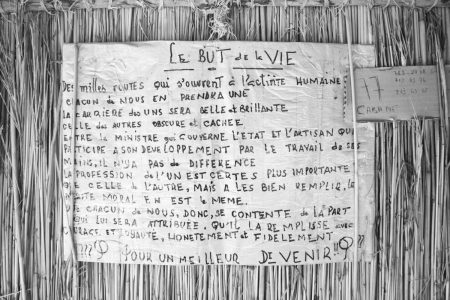 LE BUT de la VIE
DES milles ROUTES qui s'ouvrent à l'activité HUMAINE
CHACUN de NOUS EN PRENDRA UNE
LA CARRIÈRE DES UNS SERA BELLE et BRILLANTE
CELLE des AUTRES OBSCURE et CACHEE
ENTRE le MINISTRE qui GOUVERNE L'ETAT ET L'ARTISAN QUI
PARTICIPE A SON DEVELOPPEMENT PAR LE TRAVAIL de SES
MAINS, IL N'YA PAS de DIFFERENCE
LA PROFESSION de l'UN EST CERTES PLUS IMPORTANTE
QUE CELLE de L'AUTRE, MAIS A LES BIEN REMPLIR, LA
MORAL EN EST le MEME.
QUE CHACUN de NOUS, DONC, SE CONTENTE de LA PART
QUI LUI SERA ATTRIBUÉE, QU'IL LA REMPLISSE avec
COURAGE et LOYAUTE, HONETEMENT et FIDELEMENT
POUR UN MEILLEUR DEVENIR!!
17